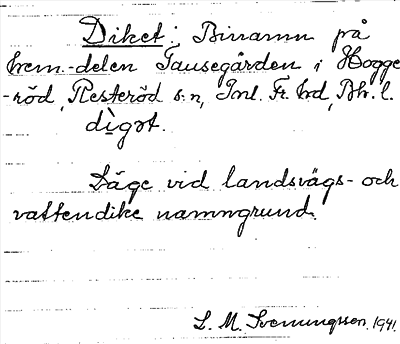 Diket: Binamn på
hem.-delen Tausegården i Hogge
-röd, Resteröd s:n, Inl. Fr. hrd, Bh. l.
dìgət.
Läge vid landsvägs- och
vattendike namngrund.
L. M. Svenungsson. 1941.